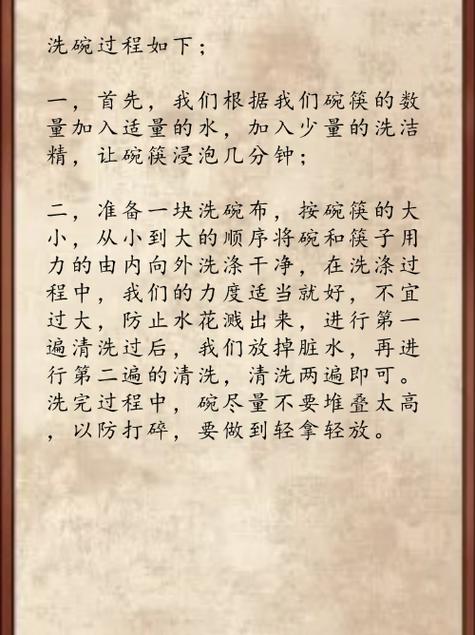 洗碗过程如下；
一，首先，我们根据我们碗筷的数
量加入适量的水，加入少量的洗洁
精，让碗筷浸泡几分钟；
二，准备一块洗碗布，按碗筷的大
小，从小到大的顺序将碗和筷子用
力的由内向外洗涤干净，在洗涤过
程中，我们的力度适当就好，不宜
过大，防止水花溅出来，进行第一
遍清洗过后，我们放掉脏水，再进
行第二遍的清洗，清洗两遍即可。
洗完过程中，碗尽量不要堆叠太高
，以防打碎，要做到轻拿轻放。